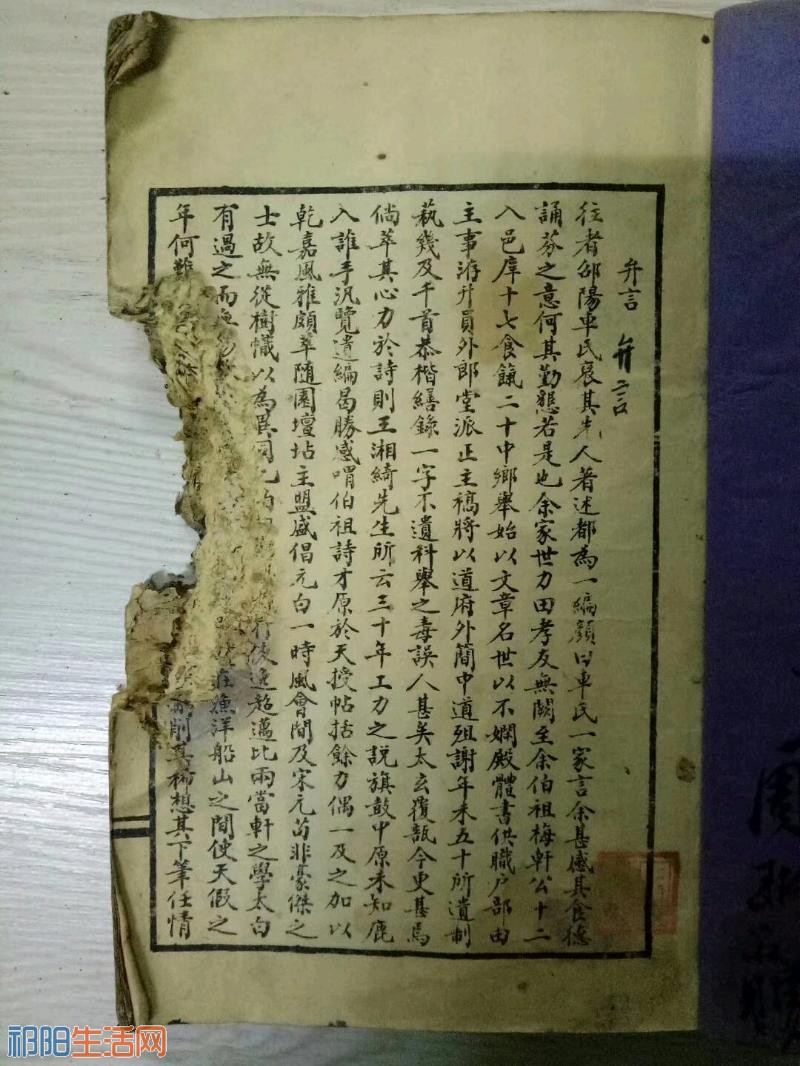 弁言 弁言
往者邵陽車氏裒其先人著述都為一編顏曰車氏一家言余甚感其食德
誦芬之意何其勤懇若是也余家世力田孝友無闕至余伯祖梅軒公十二
入邑庠十七食餼二十中鄉舉始以文章名世以不嫻殿體書供職户部由
主事洊升員外郎堂派正主稿將以道府外簡中道殂謝年未五十所遺制
藝幾及千首恭楷繕錄一字不遺科舉之毒誤人甚矣太玄覆瓿今更甚焉
倘萃其心力於詩則王湘綺先生所云三十年工力之說旗鼓中原未知鹿
入誰手汎覽遺編曷勝感喟伯祖詩才原於天授帖括餘力偶一及之加以
乾嘉風雅頗萃隨園壇坫主盟盛倡元白一時風會間及宋元苟非豪傑之
士故無從樹幟以為異同 行俊逸超邁比兩當軒之學太白
有過之而無 在漁洋船山之間使天假之
年何難 削其稀想其下筆任情
祁阳生活网